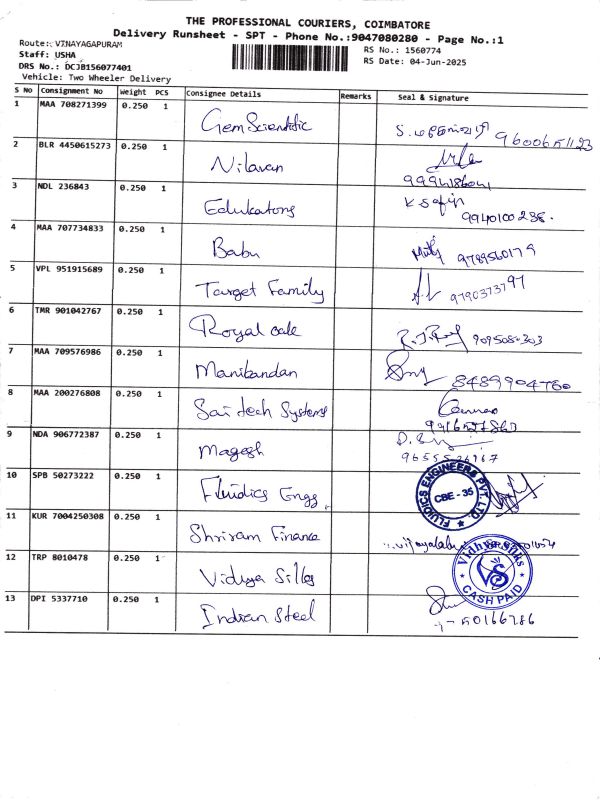 THE PROFESSIONAL COURIERS, COIMBATORE
Delivery Runsheet - SPT - Phone No.:9047080280 - Page No.:1
Route: VINAYAGAPURAM
Staff: USHA
DRS No.: DCJB156077401
Vehicle: Two Wheeler Delivery
RS No.: 1560774
RS Date: 04-Jun-2025
S No Consignment No Weight PCS Consignee Details Remarks Seal & Signature
1 MAA 708271399 0.250 1 Gem Scientific 9600651123
2 BLR 4450615273 0.250 1 Nilavan
3 NDL 236843 0.250 1 Edukatong 9940100238.
4 MAA 707734833 0.250 1 Babu 9789560179
5 VPL 951915689 0.250 1 Target Family 9790373797
6 TMR 901042767 0.250 1 Royal oak
7 MAA 709576986 0.250 1 Manikandan 8489904760
8 MAA 200276808 0.250 1 Sai tech Systems
9 NDA 906772387 0.250 1 Magesh
10 SPB 50273222 0.250 1 Fluidics Engg.
FLUIDICS ENGINEERS PVT LTD
CBE - 35
11 KUR 7004250308 0.250 1 Shriram Finance
12 TRP 8010478 0.250 1 Vidya Silks
Vidhya Silks
VS
CASH PAID
13 DPI 5337710 0.250 1 Indian Steel